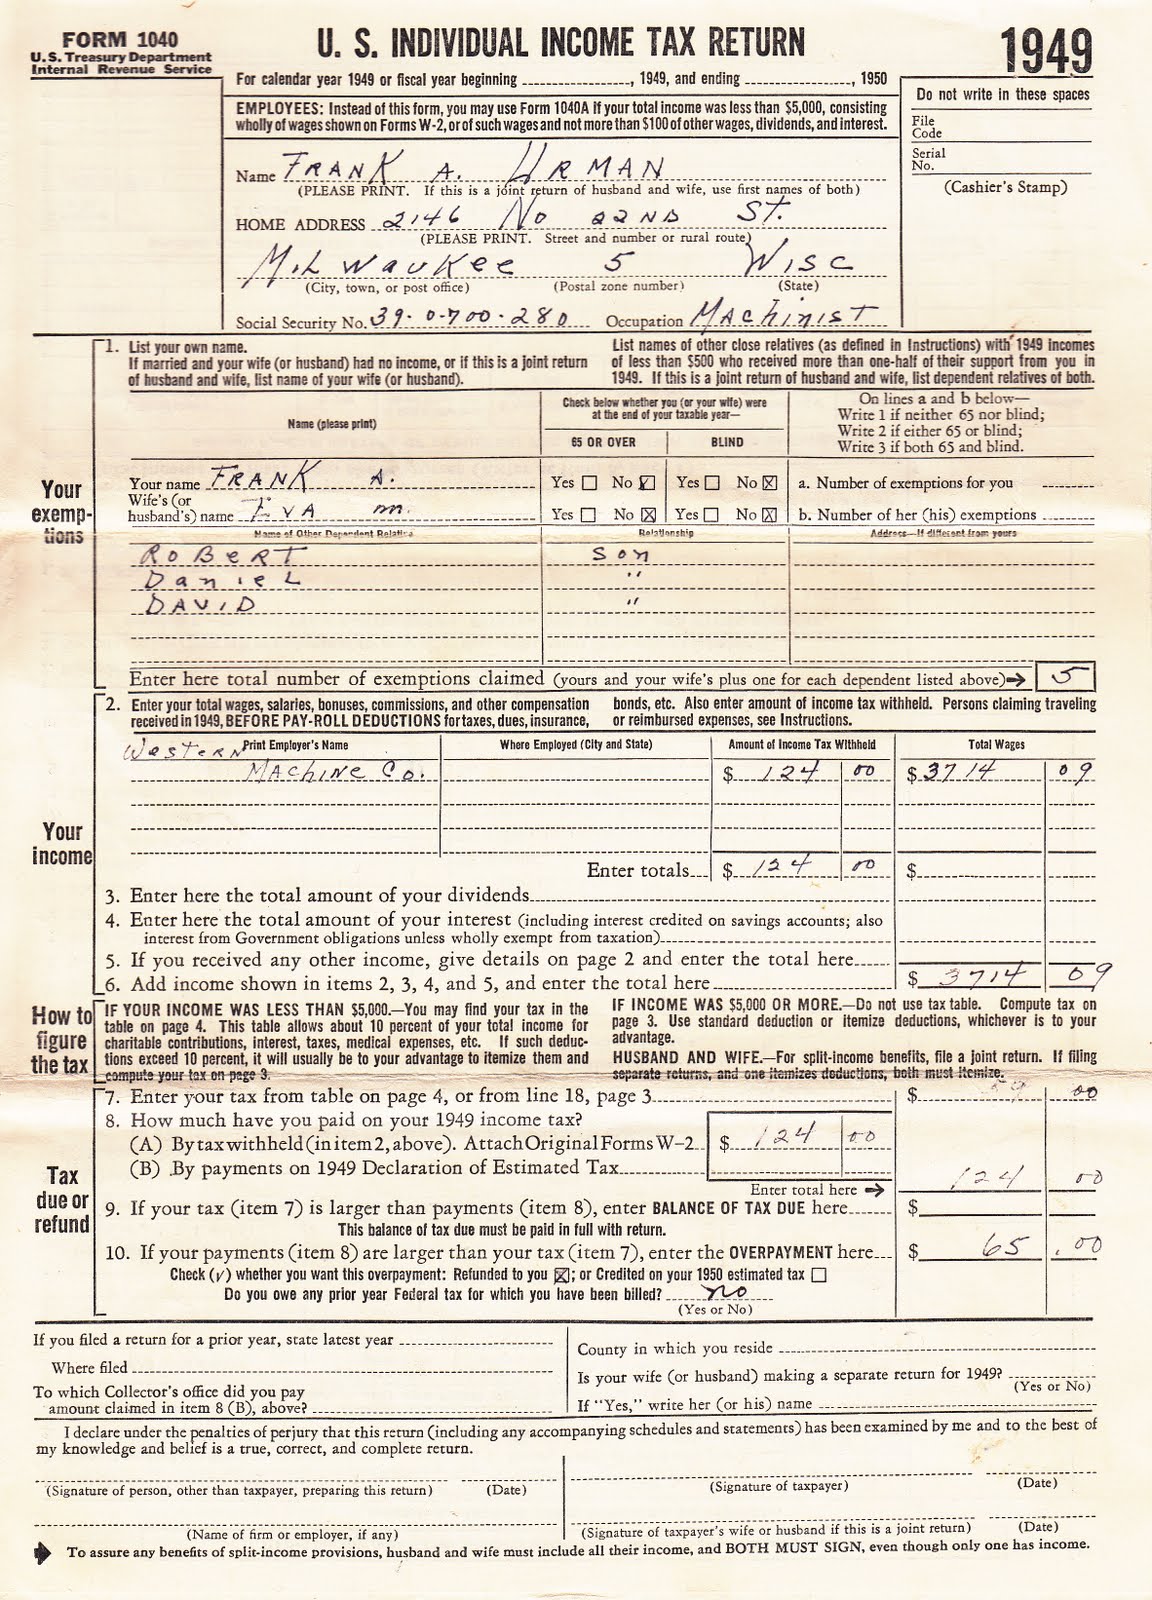 FORM 1040
U.S. Treasury Department
Internal Revenue Service
U. S. INDIVIDUAL INCOME TAX RETURN
1949
For calendar year 1949 or fiscal year beginning ----------, 1949, and ending ----------, 1950
Do not write in these spaces
EMPLOYEES: Instead of this form, you may use Form 1040A if your total income was less than $5,000, consisting
wholly of wages shown on Forms W-2, or of such wages and not more than $100 of other wages, dividends, and interest.
File
Code
Serial
No.
(Cashier's Stamp)
Name FRANK A. URMAN
(PLEASE PRINT. If this is a joint return of husband and wife, use first names of both)
HOME ADDRESS 2146 No 22ND ST.
(PLEASE PRINT. Street and number or rural route)
MiLwauKee 5 Wisc
(City, town, or post office) (Postal zone number) (State)
Social Security No. 39-0-700-280 Occupation MAchinisT
1. List your own name.
If married and your wife (or husband) had no income, or if this is a joint return
of husband and wife, list name of your wife (or husband).
List names of other close relatives (as defined in Instructions) with 1949 incomes
of less than $500 who received more than one-half of their support from you in
1949. If this is a joint return of husband and wife, list dependent relatives of both.
Name (please print)
Check below whether you (or your wife) were
at the end of your taxable year—
65 OR OVER BLIND
On lines a and b below—
Write 1 if neither 65 nor blind;
Write 2 if either 65 or blind;
Write 3 if both 65 and blind.
Your exemp-tions
Your name FRANK A. Yes ☐ No ☑ Yes ☐ No ☒ a. Number of exemptions for you
Wife's (or
husband's) name EVA m. Yes ☐ No ☒ Yes ☐ No ☒ b. Number of her (his) exemptions
Name of Other Dependent Relative Relationship Address—If different from yours
RoBERT Son
DanieL "
DAVID "
Enter here total number of exemptions claimed (yours and your wife's plus one for each dependent listed above)→ 5
2. Enter your total wages, salaries, bonuses, commissions, and other compensation
received in 1949, BEFORE PAY-ROLL DEDUCTIONS for taxes, dues, insurance,
bonds, etc. Also enter amount of income tax withheld. Persons claiming traveling
or reimbursed expenses, see Instructions.
Print Employer's Name Where Employed (City and State) Amount of Income Tax Withheld Total Wages
WesTERN
MAchiNe Co. $ 124 00 $ 3714 09
Your income
Enter totals $ 124 00 $
3. Enter here the total amount of your dividends
4. Enter here the total amount of your interest (including interest credited on savings accounts; also
interest from Government obligations unless wholly exempt from taxation)
5. If you received any other income, give details on page 2 and enter the total here
6. Add income shown in items 2, 3, 4, and 5, and enter the total here $ 3714 09
How to figure the tax
IF YOUR INCOME WAS LESS THAN $5,000.—You may find your tax in the
table on page 4. This table allows about 10 percent of your total income for
charitable contributions, interest, taxes, medical expenses, etc. If such deduc-
tions exceed 10 percent, it will usually be to your advantage to itemize them and
compute your tax on page 3.
IF INCOME WAS $5,000 OR MORE.—Do not use tax table. Compute tax on
page 3. Use standard deduction or itemize deductions, whichever is to your
advantage.
HUSBAND AND WIFE.—For split-income benefits, file a joint return. If filing
separate returns, and one itemizes deductions, both must itemize.
7. Enter your tax from table on page 4, or from line 18, page 3 $ 59 00
Tax due or refund
8. How much have you paid on your 1949 income tax?
(A) By tax withheld (in item 2, above). Attach Original Forms W-2 $ 124 00
(B) By payments on 1949 Declaration of Estimated Tax
Enter total here → 124 00
9. If your tax (item 7) is larger than payments (item 8), enter BALANCE OF TAX DUE here $
This balance of tax due must be paid in full with return.
10. If your payments (item 8) are larger than your tax (item 7), enter the OVERPAYMENT here $ 65 .00
Check (√) whether you want this overpayment: Refunded to you ☒; or Credited on your 1950 estimated tax ☐
Do you owe any prior year Federal tax for which you have been billed? no
(Yes or No)
If you filed a return for a prior year, state latest year
Where filed
To which Collector's office did you pay
amount claimed in item 8 (B), above?
County in which you reside
Is your wife (or husband) making a separate return for 1949?
(Yes or No)
If "Yes," write her (or his) name
I declare under the penalties of perjury that this return (including any accompanying schedules and statements) has been examined by me and to the best of
my knowledge and belief is a true, correct, and complete return.
(Signature of person, other than taxpayer, preparing this return) (Date) (Signature of taxpayer) (Date)
(Name of firm or employer, if any) (Signature of taxpayer's wife or husband if this is a joint return) (Date)
To assure any benefits of split-income provisions, husband and wife must include all their income, and BOTH MUST SIGN, even though only one has income.